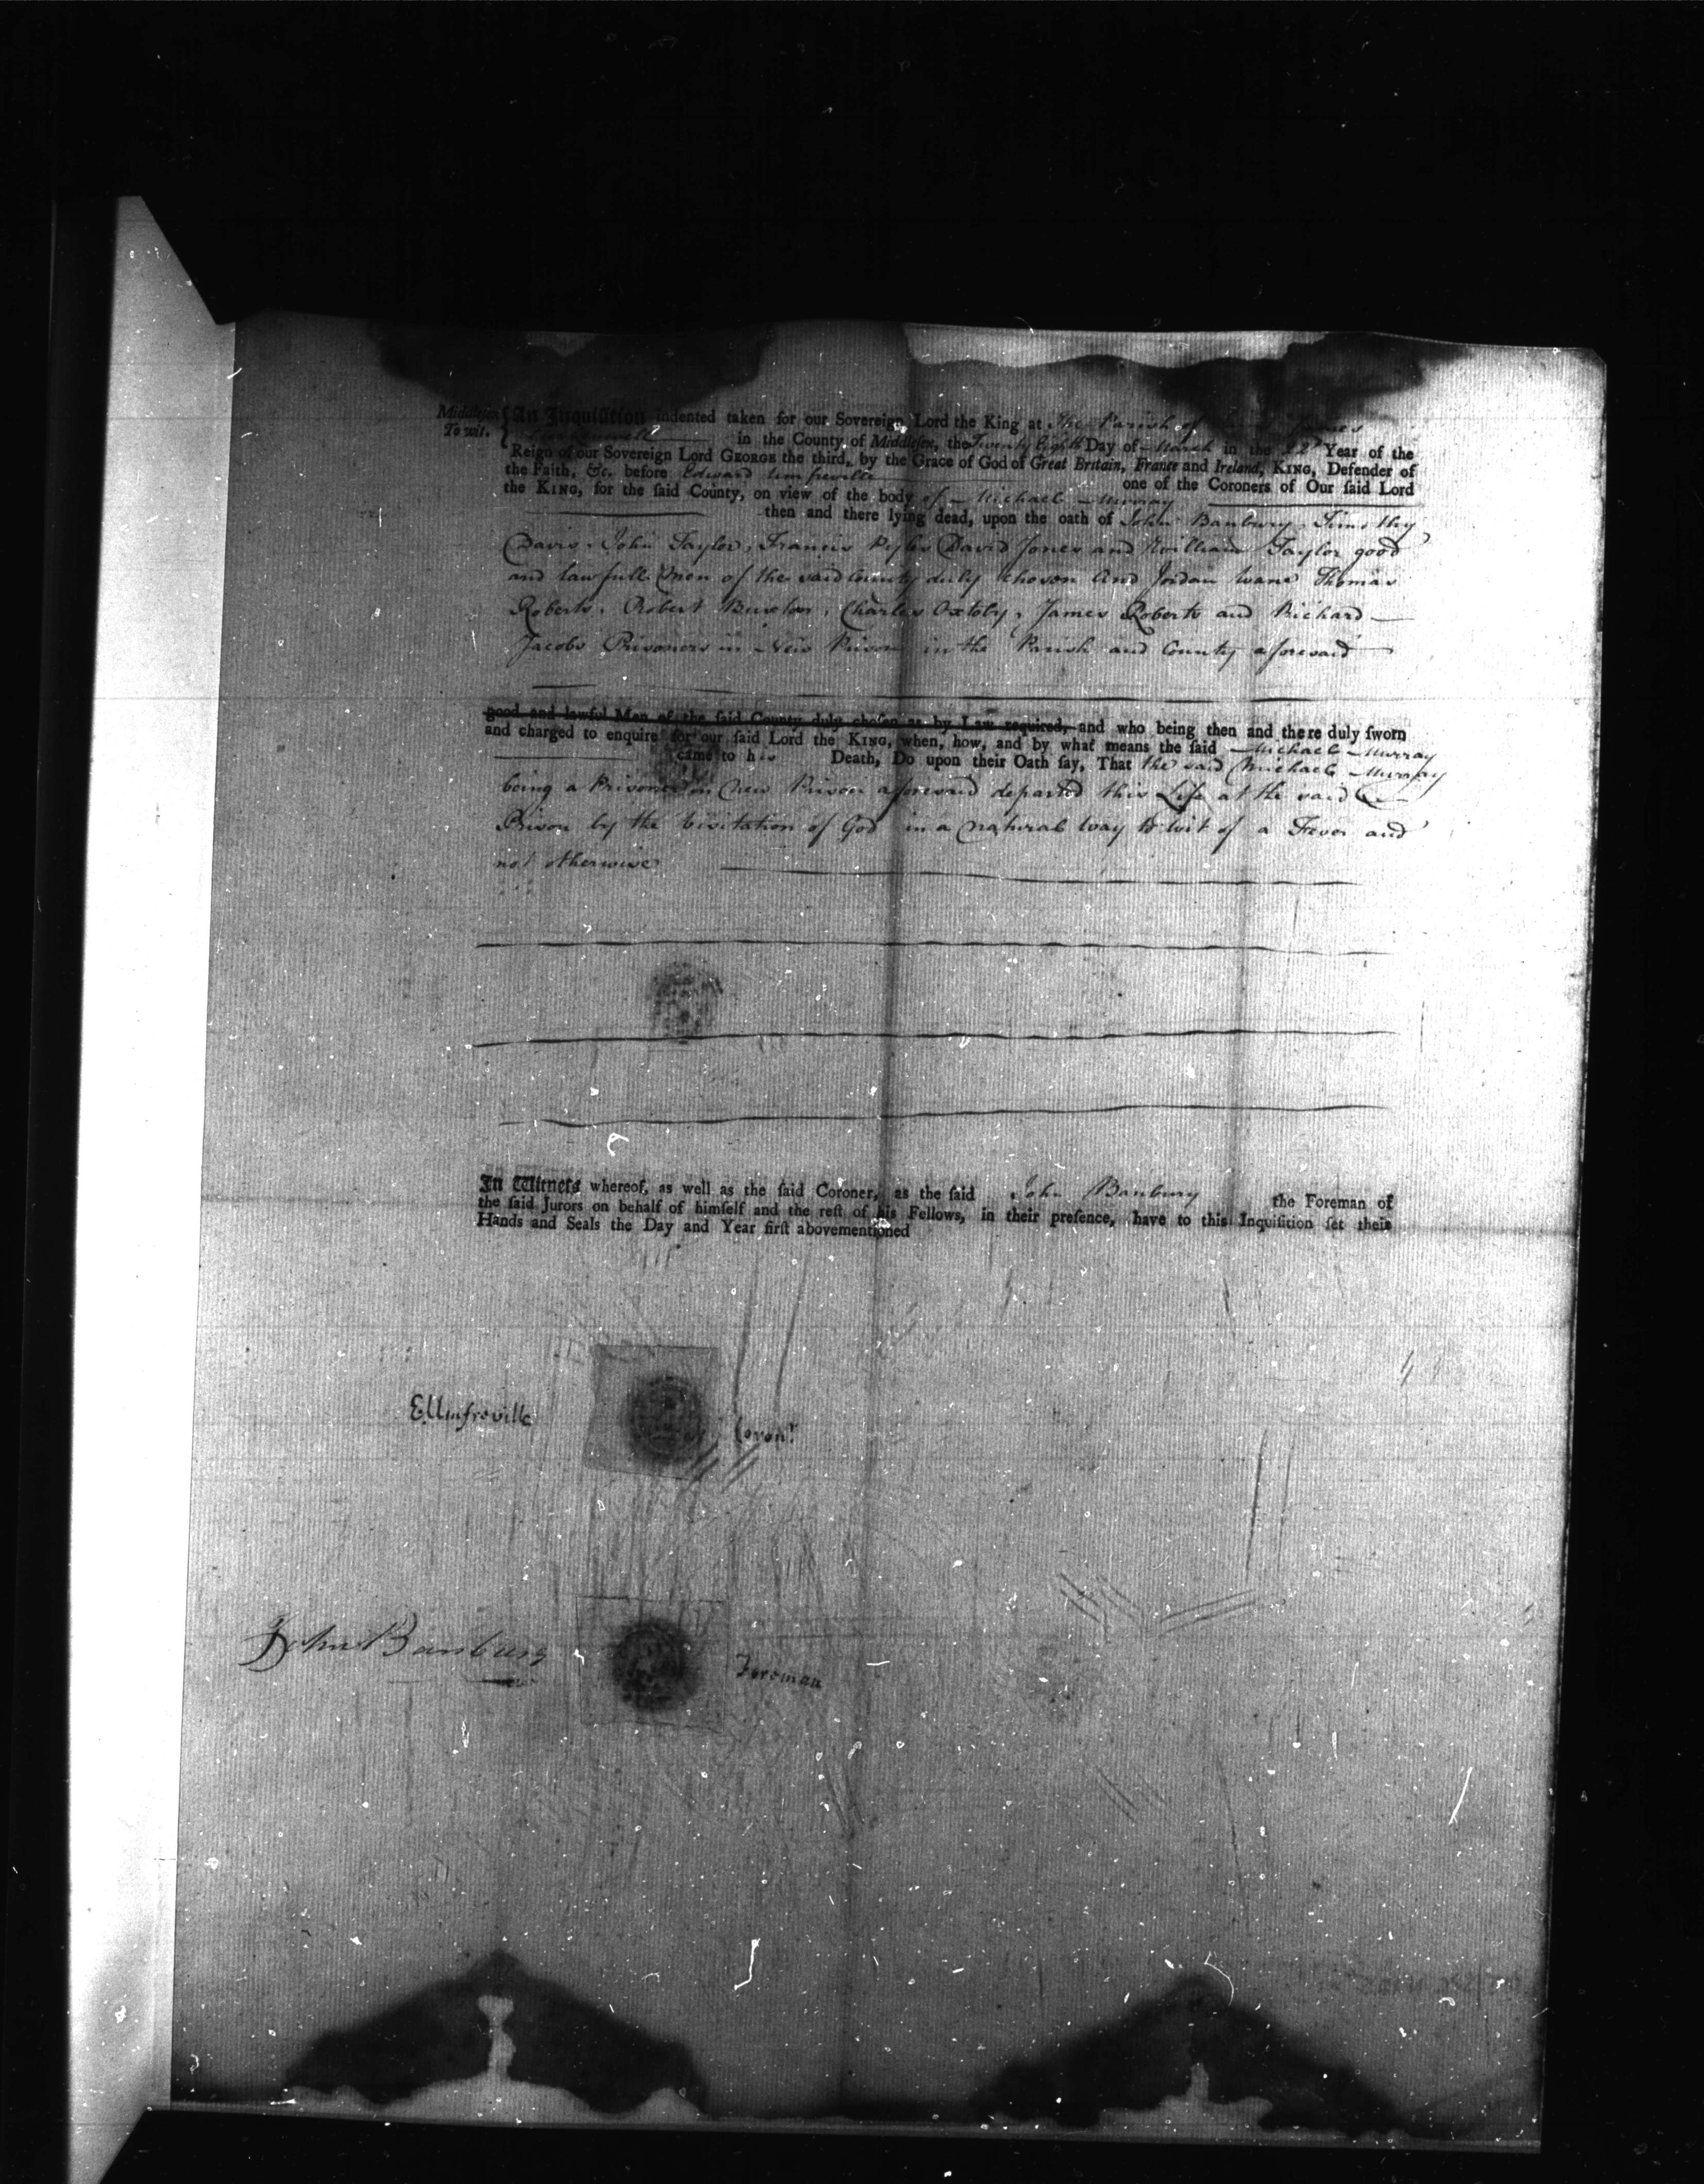 Middleſex
To wit.
An Inquisition indented taken for our Sovereign Lord the King at The Parish of James
in the County of Middleſex, the Twenty Eighth Day of March in the 22d Year of the
Reign of our Sovereign Lord GEORGE the third, by the Grace of God of Great Britain, France and Ireland, KING, Defender of
the Faith, &c. before Edward Umfreville one of the Coroners of Our ſaid Lord
the KING, for the ſaid County, on view of the body of Michael Murray
then and there lying dead, upon the oath of John Banbury, Timothy
Davis, John Taylor, Francis David Jones and William Taylor good
and lawfull Men of the said County duly chosen And Jordan Thomas
Roberts, Robert Charles Oxtoby, James Roberts and Richard
Jacobs Prisoners in New Prison in the Parish and County aforesaid
good and lawful Men of the ſaid County duly choſen as by Law required, and who being then and there duly ſworn
and charged to enquire for our ſaid Lord the KING, when, how, and by what means the ſaid Michael Murray
came to his Death, Do upon their Oath ſay, That the said Michael Murray
being a Prisoner in New Prison aforesaid departed this Life at the said
Prison by the Visitation of God in a natural way to wit of a Fever and
not otherwise
In Witneſs whereof, as well as the ſaid Coroner, as the ſaid John Banbury the Foreman of
the ſaid Jurors on behalf of himſelf and the reſt of his Fellows, in their preſence, have to this Inquiſition ſet their
Hands and Seals the Day and Year firſt abovementioned
E Umfreville Coronr
John Banbury Foreman